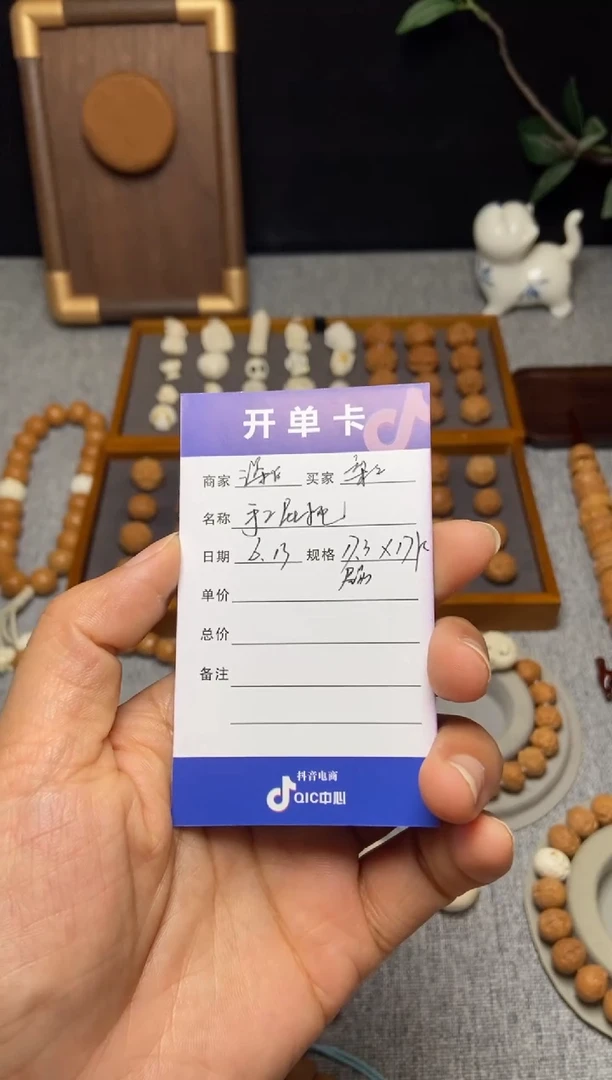 开单卡
商家 买家
名称
日期 6.13 规格 17.3 X 17
单价
总价
备注
抖音电商
QIC中心